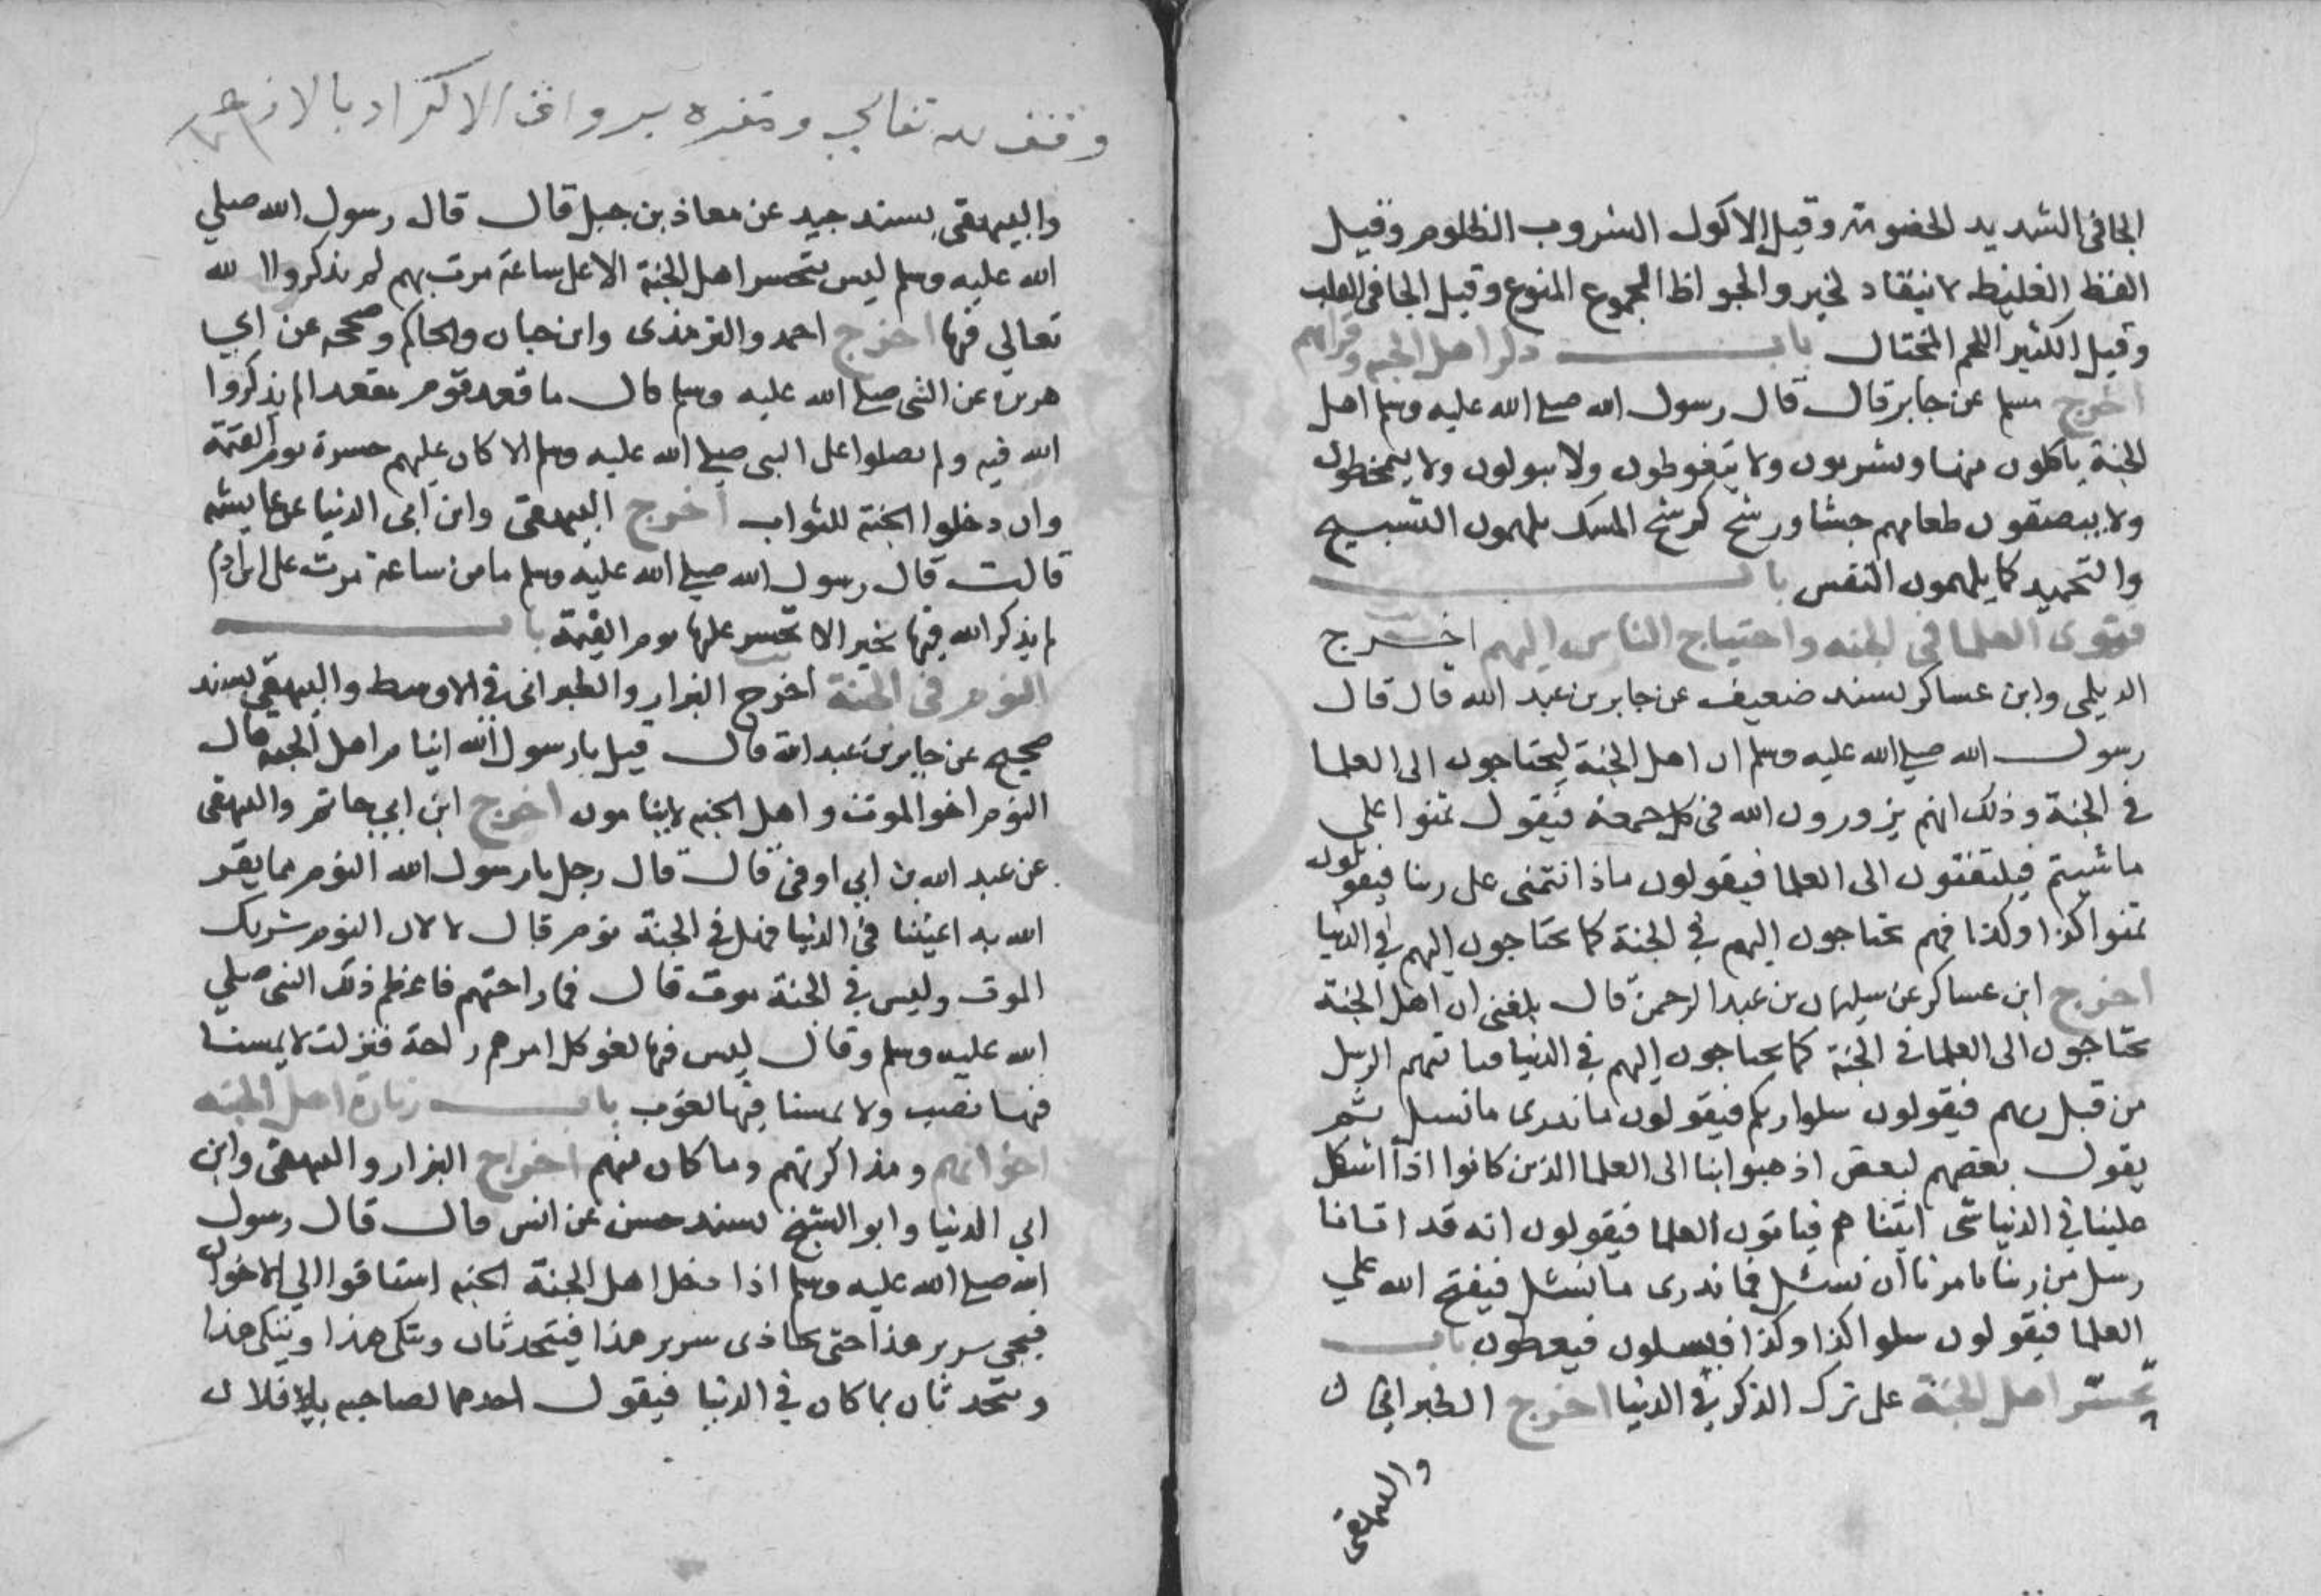 الجافى الشديد الخصومة وقيل الاكول الشروب الظلوم وقيل
الفظ الغليظ لا ينقاد لخير والجواظ الجموع المنوع وقيل الجافى القلب
وقيل الكثير اللحم المختال باب ذكر اهل الجنة وقراهم
اخرج مسلم عن جابر قال قال رسول الله صلى الله عليه وسلم اهل
الجنة ياكلون منها ويشربون ولا يتغوطون ولا يبولون ولا يتمخطون
ولا يبصقون طعامهم جشا ورشح كرشح المسك يلهمون التسبيح
والتحميد كما يلهمون النفس باب
فتوى العلما فى الجنه واحتياج الناس اليهم اخرج
الديلمى وابن عساكر بسند ضعيف عن جابر بن عبد الله قال قال
رسول الله صلى الله عليه وسلم ان اهل الجنة ليحتاجون الى العلما
فى الجنة وذلك انهم يزورون الله فى كل جمعة فيقول تمنوا على
ما شيتم فيلتفتون الى العلما فيقولون ماذا نتمنى على ربنا فيقولون
تمنوا كذا وكذا فهم يحتاجون اليهم فى الجنة كما يحتاجون اليهم فى الدنيا
اخرج ابن عساكر عن سليمان بن عبد الرحمن قال بلغنى ان اهل الجنة
يحتاجون الى العلما فى الجنة كما يحتاجون اليهم فى الدنيا فتاتيهم الرسل
من قبل ربهم فيقولون سلوا ربكم فيقولون ما ندرى ما نسل ثم
يقول بعضهم لبعض اذهبوا بنا الى العلما الذين كانوا اذا اشكل
علينا فى الدنيا شى اتيناهم فياتون العلما فيقولون انه قد اتانا
رسل من ربنا يامرنا ان نسئل فما ندرى ما نسئل فيفتح الله على
العلما فيقولون سلوا كذا وكذا فيسلون فيعطون باب
تحسر اهل الجنة على ترك الذكر فى الدنيا اخرج الطبرانى
والبيهقى
وقف لله تعالى ومقره برواق الاكراد بالازهر
والبيهقى بسند جيد عن معاذ بن جبل قال قال رسول الله صلى
الله عليه وسلم ليس يتحسر اهل الجنة الا على ساعة مرت بهم لم يذكروا الله
تعالى فيها اخرج احمد والترمذى وابن حبان والحاكم وصححه عن ابى
هريرة عن النبى صلى الله عليه وسلم قال ما قعد قوم مقعدا لم يذكروا
الله فيه ولم يصلوا على النبى صلى الله عليه وسلم الا كان عليهم حسرة يوم القيمة
وان دخلوا الجنة للثواب اخرج البيهقى وابن ابى الدنيا عن عايشه
قالت قال رسول الله صلى الله عليه وسلم ما من ساعة مرت على ابن ادم
لم يذكر الله فيها بخير الا تحسر عليها يوم القيمة باب
النوم فى الجنة اخرج البزار والطبرانى فى الاوسط والبيهقى بسند
صحيح عن جابر بن عبد الله قال قيل يا رسول الله اينام اهل الجنه قال
النوم اخو الموت واهل الجنه لا ينامون اخرج ابن ابى حاتم والبيهقى
عن عبد الله بن ابى اوفى قال قال رجل يا رسول الله النوم مما يقر
الله به اعيننا فى الدنيا فهل فى الجنة نوم قال لا لان النوم شريك
الموت وليس فى الجنة موت قال فما راحتهم فاعظم ذلك النبى صلى
الله عليه وسلم وقال ليس فيها لغو كل امرهم راحة فنزلت لا يمسنا
فيها نصب ولا يمسنا فيها لغوب باب زيارة اهل الجنه
اخوانهم ومذاكرتهم وما كان منهم اخرج البزار والبيهقى وابن
ابى الدنيا وابو الشيخ بسند حسن عن انس قال قال رسول
الله صلى الله عليه وسلم اذا دخل اهل الجنة الجنه اشتاقوا الى الاخوان
فيجى سرير هذا حتى يحاذى سرير هذا فيتحدثان ويتكى هذا ويتكى هذا
ويتحدثان بما كان فى الدنيا فيقول احدهما لصاحبه يا فلان